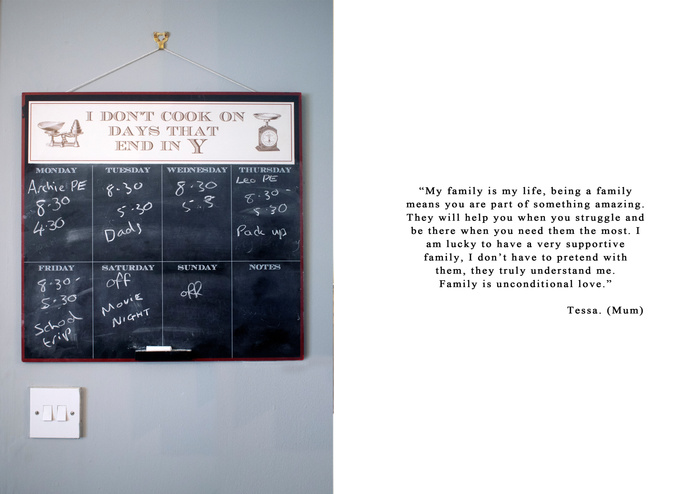 I DON'T COOK ON
DAYS THAT
END IN Y
MONDAY
Archie PE
8.30
4.30
TUESDAY
8.30
5.30
Dads
WESNESDAY
8.30
THURSDAY
Leo PE
8.30-
5.30
Pack up
FRIDAY
8.30-
5.30
School
trip
SATURDAY
off
MOVIE
NIGHT
SUNDAY
off
NOTES
“My family is my life, being a family
means you are part of something amazing.
They will help you when you struggle and
be there when you need them the most. I
am lucky to have a very supportive
family, I don’t have to pretend with
them, they truly understand me.
Family is unconditional love.”
Tessa. (Mum)